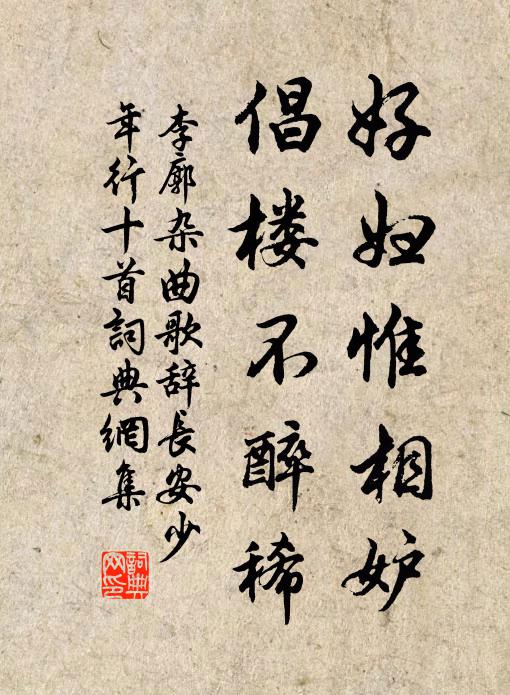 好妇惟相妒
倡楼不醉稀
李廓杂曲歌辞长安少
年行十首词典网集
词典网印